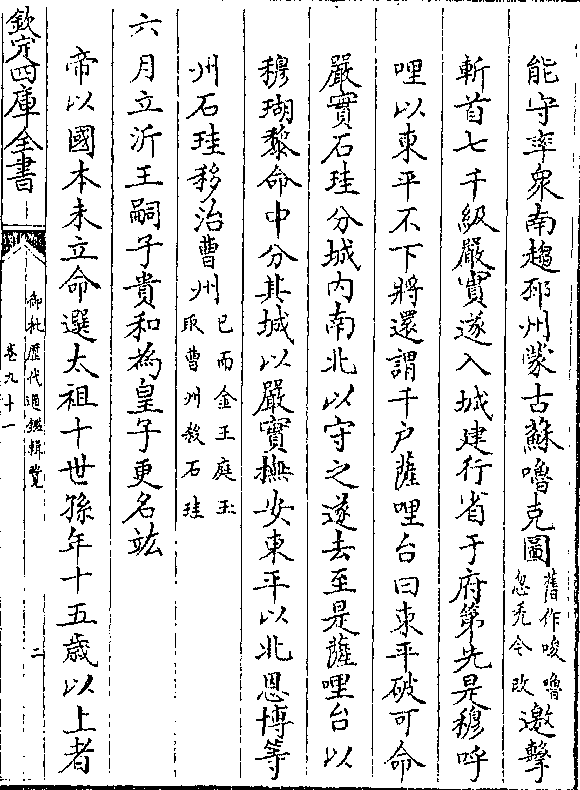 能守率衆南趨邳州蒙古蘇嚕克圖舊作唆嚕忽禿今改邀擊
斬首七千級嚴實遂入城建行省于府第先是穆呼
哩以東平不下將還謂千户薩哩台曰東平破可命
嚴實石珪分城内南北以守之遂去至是薩哩台以
穆瑚黎命中分其城以嚴實撫安東平以北恩博等
州石珪移治曹州已而金王庭玉取曹州殺石珪
六月立沂王嗣子貴和為皇子更名竑
帝以國本未立命選太祖十世孫年十五歲以上者
欽定四庫全書
御批歷代通鑑輯覽
卷九十一
二